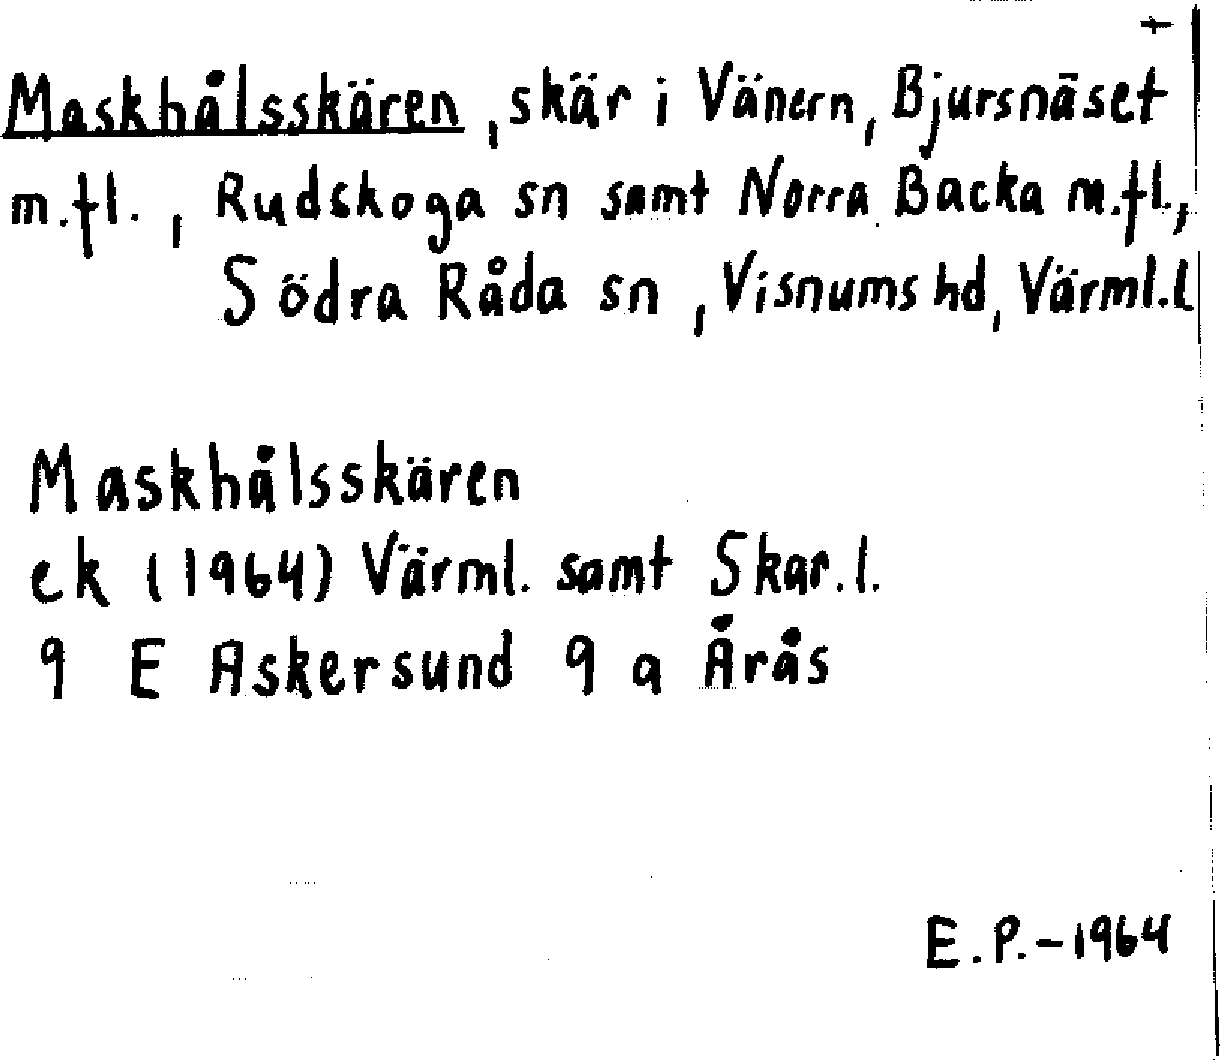 +
Maskhålsskären, skär i Vänern, Bjursnäset
m.fl., Rudskoga sn samt Norra Backa m.fl.,
Södra Råda sn, Visnums hd, Värml.l
Maskhålsskären
ek (1964) Värml. samt Skar.l.
9 E Askersund 9 a Årås
E.P.-1964